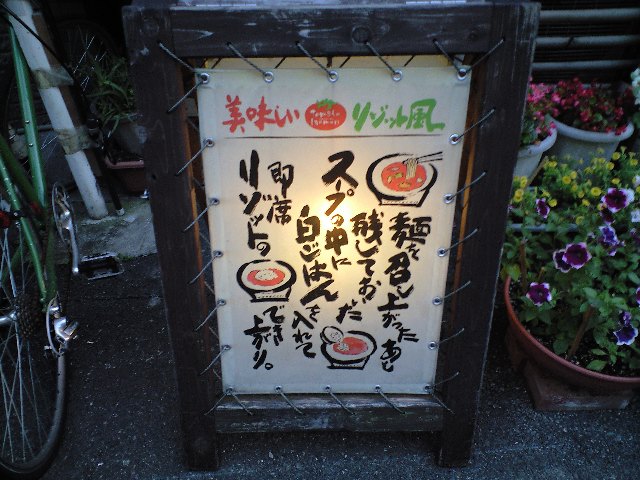 美味しい リゾット風
麺を召し上がったあと
残しておいた
スープの中に
白ごはんを入れて
即席
リゾットの
でき上がり。